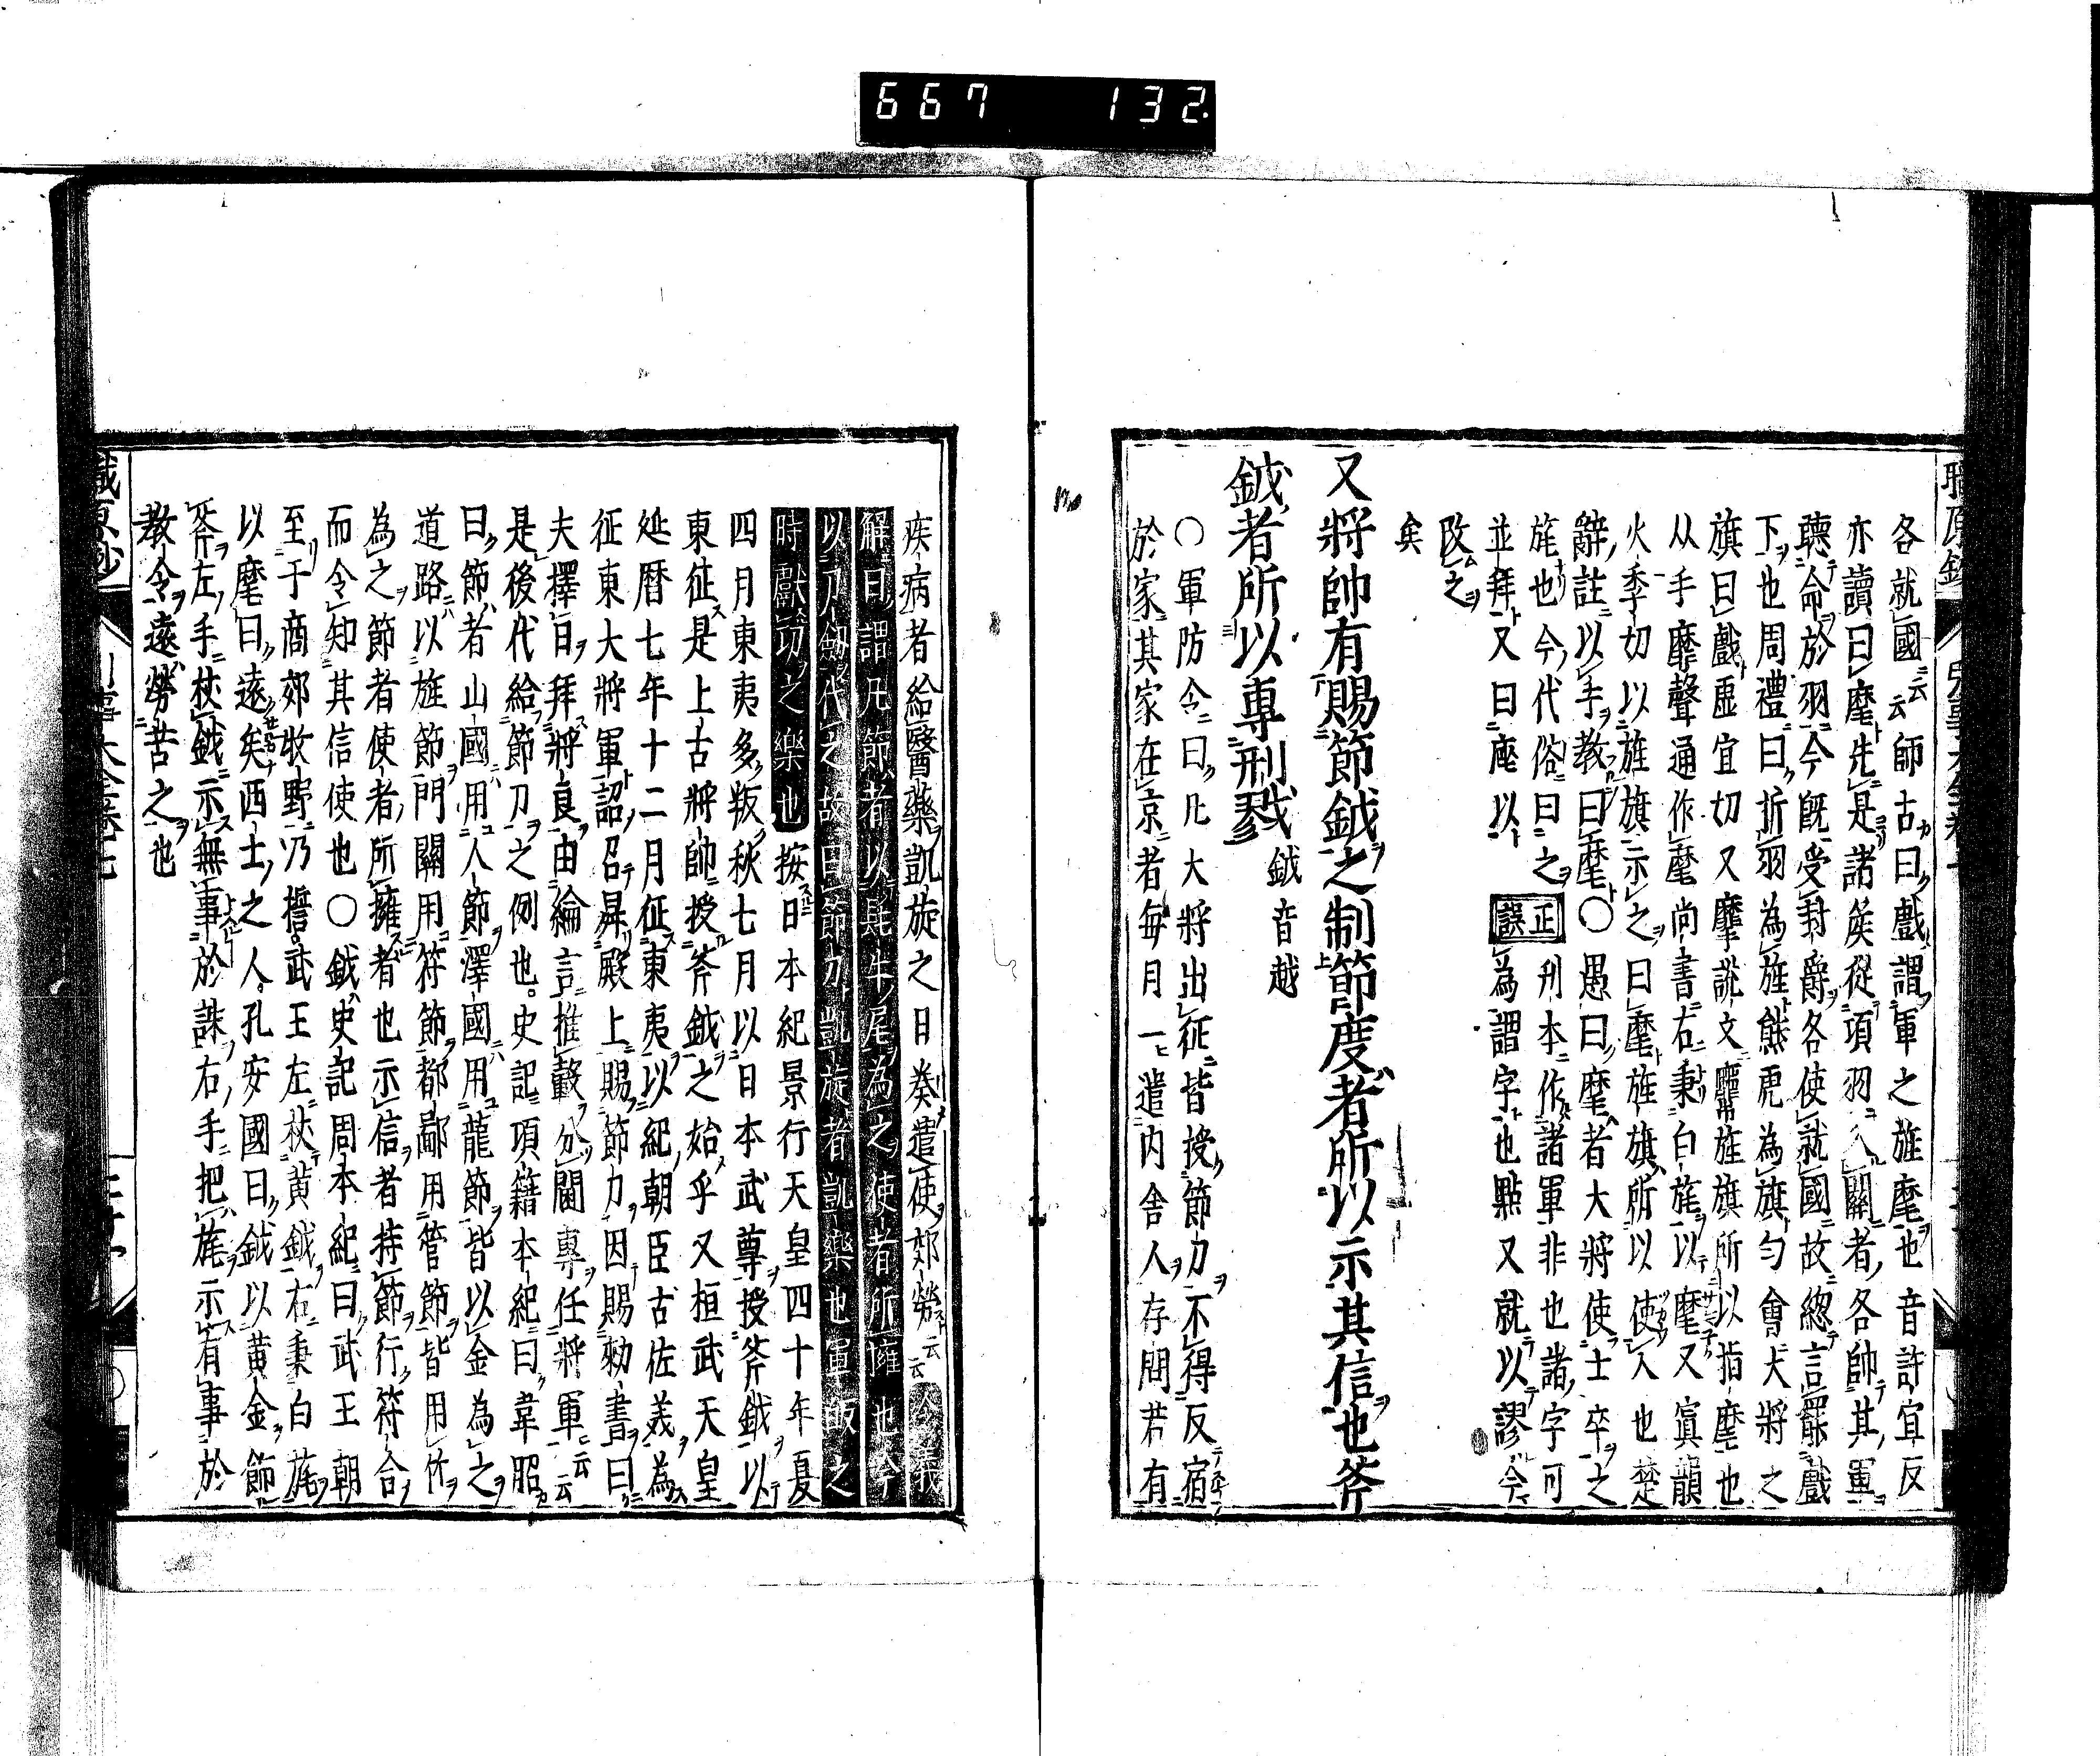 667 132.
各就國云云師古曰戲謂軍之旌麾也音許宜反
亦讀曰麾先是諸矦從項羽入關者各帥其軍
聽命於羽今既受封爵各使就國故總言罷戲
下也周禮曰折羽為旌熊虎為旗勻會大將之
旗曰戲虛宜切又摩説文旌旗所以指麾也
从手靡聲通作麾尚書右秉白旄以麾又寘韻
火季切以旌旗示之曰麾旌旗所以使人也楚
辭註以手教曰麾○愚曰麾者大將使士卒之
旄也今代俗曰之正誤刋本作諸軍非也諸字可
並拜又曰座以為謂字也點又就以謬今
改之
矣
又將帥有賜節鉞之制節度者所以示其信也斧
鉞者所以專刑戮鉞音越
○軍防令曰凡大將出征皆授節刀不得反宿
於家其家在京者每月一遣内舍人存問若有
疾病者給醫藥凱旋之日奏遣使郊勞云云義
解曰謂凡節者以旄牛尾為之使者所擁也今
以刀劔代之故曰節刀凱旋者凱樂也軍皈之
時獻功之樂也按日本紀景行天皇四十年夏
四月東夷多叛秋七月以日本武尊授斧鉞以
東征是上古將帥授斧鉞之始乎又桓武天皇
延暦七年十二月征東夷以紀朝臣古佐美為
征東大將軍詔召昇殿上賜節刀因賜勑書曰
夫擇日拜將良由綸言推轂分閫專任將軍云云
是後代給節刀之例也史記項籍本紀曰韋昭
曰節者山國用人節澤國用龍節皆以金為之
道路以旌節門關用符節都鄙用管節皆用竹
為之節者使者所擁者也示信者持節行符合
而令知其信使也○鉞史記周本紀曰武王朝
至于商郊牧野乃誓武王左杖黄鉞右秉白旄
以麾曰遠矣西土之人孔安國曰鉞以黄金飾
斧左手杖鉞示無事於誅右手把旄示有事於
教令遠勞苦之也